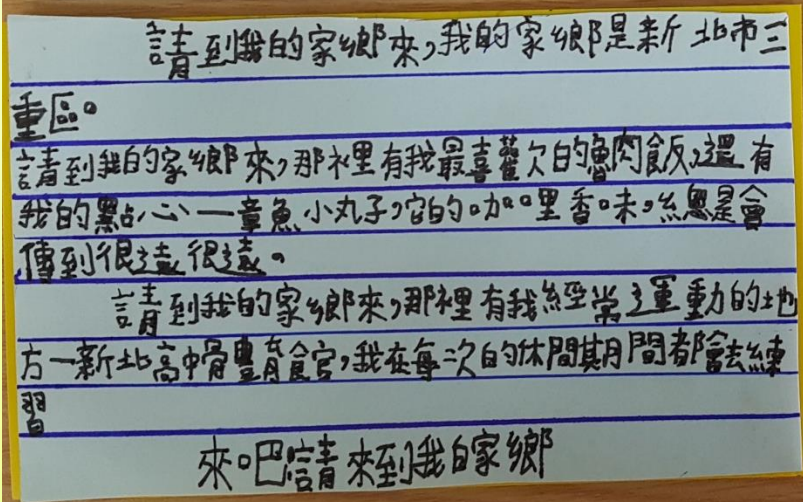 請到我的家鄉來,我的家鄉是新北市三
重區。
請到我的家鄉來,那裡有我最喜歡欠的魯肉飯,還有
我的點心一章魚小丸子,它的咖哩香味,總是會
傳到很遠很遠。
請到我的家鄉來,那裡有我經常運動的地
方一新北高中體育館,我在每次的休間期間都會去練
習
來吧請來到我的家鄉